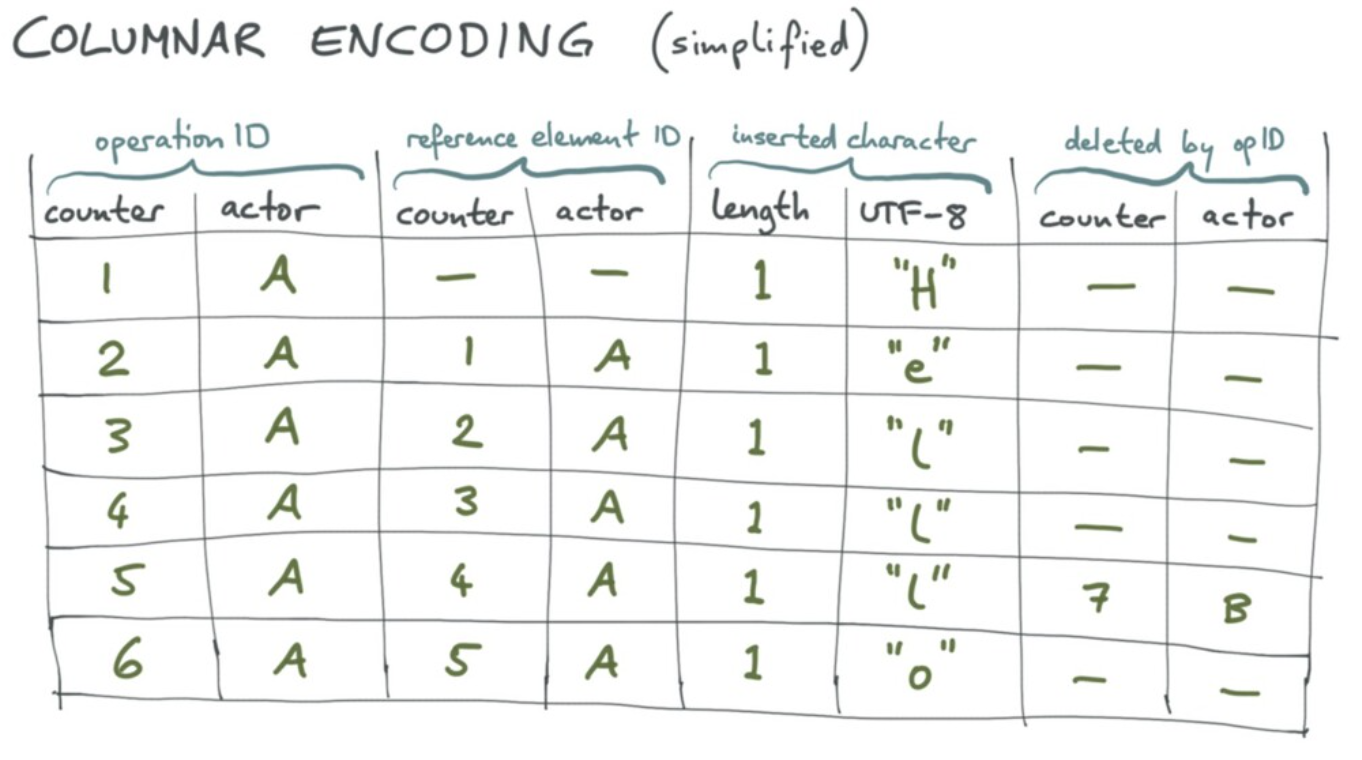 COLUMNAR ENCODING (simplified)
operation ID reference element ID inserted character deleted by opID
counter actor counter actor length UTF-8 counter actor
1 A — — 1 "H" — —
2 A 1 A 1 "e" — —
3 A 2 A 1 "l" — —
4 A 3 A 1 "l" — —
5 A 4 A 1 "l" 7 B
6 A 5 A 1 "o" — —